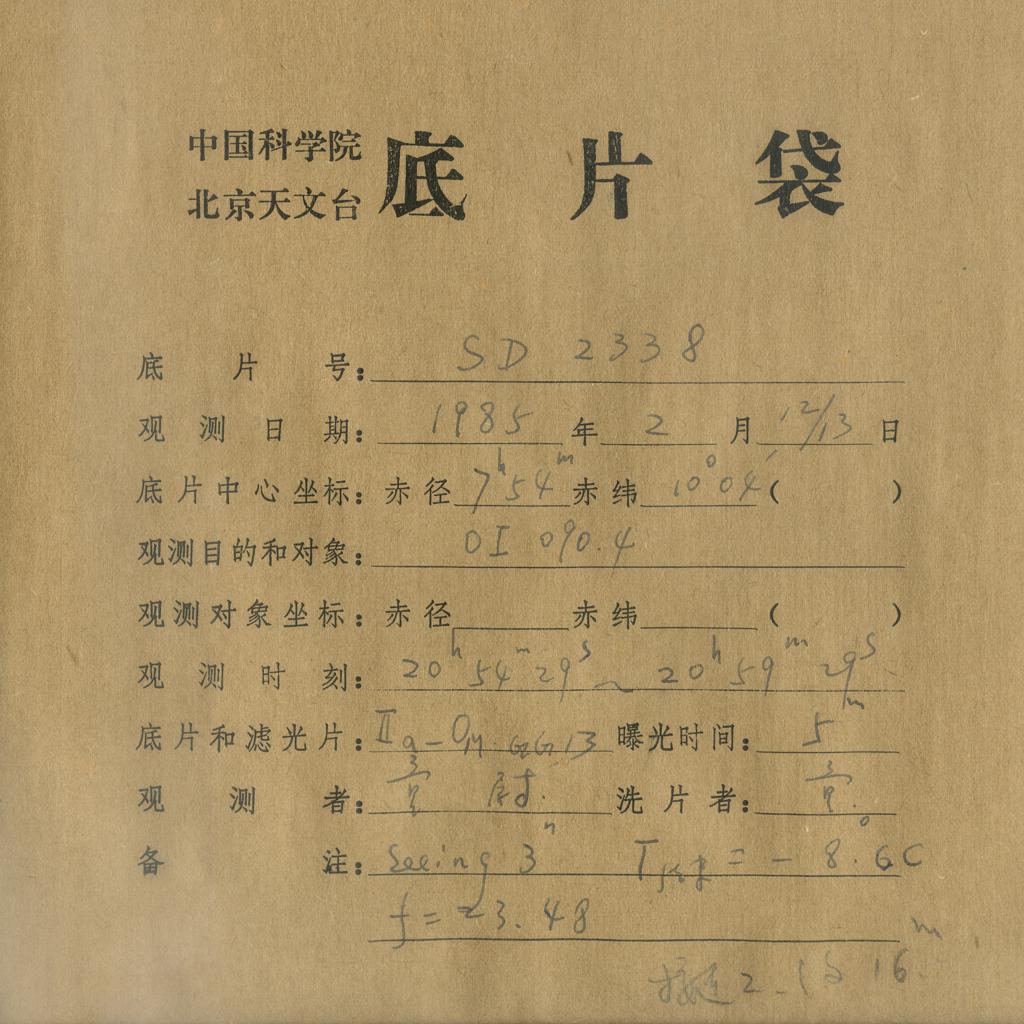 中国科学院
北京天文台
底片袋
底片号: SD 2338
观测日期: 1985 年 2 月 12/13 日
底片中心坐标: 赤径 7h54m 赤纬 10°04′ ( )
观测目的和对象: OI 090.4
观测对象坐标: 赤径 赤纬 ( )
观测时刻: 20h 54m 29s ~ 20h 59m 29s
底片和滤光片: IIa-O GG13 曝光时间: 5m
观测者: 洗片者:
备注: Seeing 3″ T = -8.6°C
f = 23.48
16m